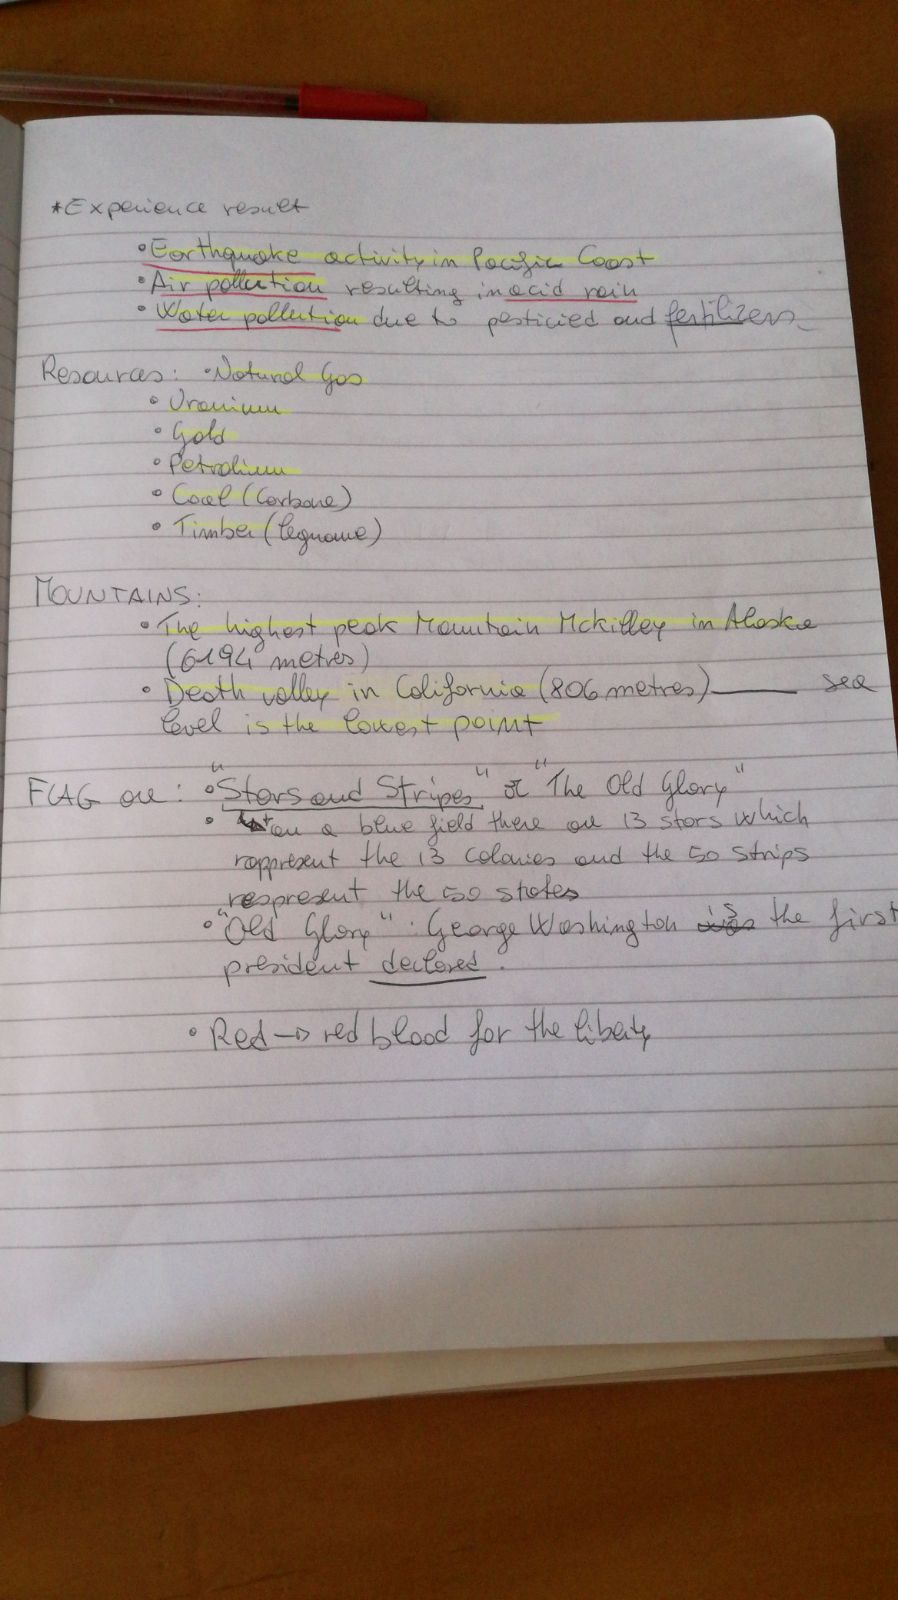 *Experience result
•Earthquake activity in Pacific Coast
•Air pollution resulting in acid rain
•Water pollution due to pesticied and fertilizers
Resources: •Natural Gas
•Uranium
•Gold
•Petrolium
•Coal (Carbone)
•Timber (legname)
MOUNTAINS:
•The highest peak Mountain Mckilley in Alaska
(6194 metres)
•Death valley in California (806 metres) sea
level is the lowest point
FLAG are: •"Stars and Stripes" or "The Old Glory"
• on a blue field there are 13 stars which
rappresent the 13 colonies and the 50 strips
respresent the 50 states
•"Old Glory": George Washington is the first
president declared.
•Red → red blood for the liberty